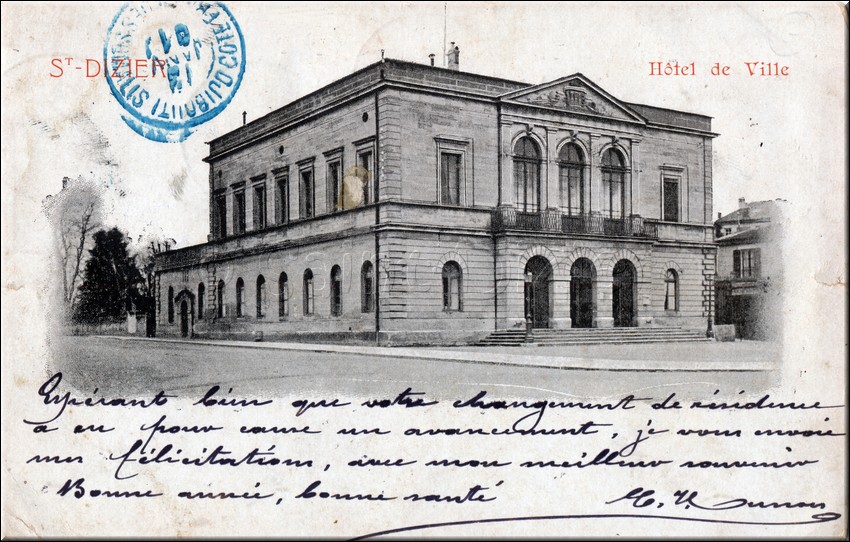 ST-DIZIER
Hôtel de Ville
DJIBOUTI
JANV
01
Espérant bien que votre changement de résidence
a eu pour cause un avancement, je vous envoie
mes félicitations, avec mon meilleur souvenir
Bonne année, bonne santé